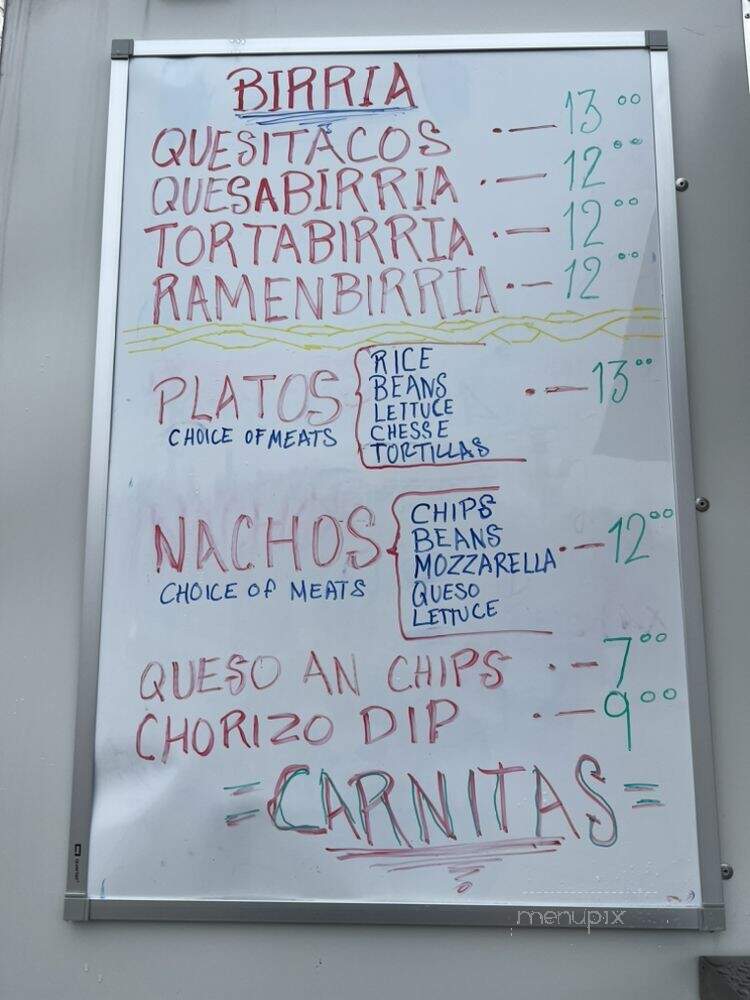 BIRRIA
QUESITACOS .— 13 00
QUESABIRRIA .— 12 00
TORTABIRRIA .— 12 00
RAMENBIRRIA .— 12 00
PLATOS
CHOICE OF MEATS
RICE
BEANS
LETTUCE
CHESSE
TORTILLAS
.— 13 00
NACHOS
CHOICE OF MEATS
CHIPS
BEANS
MOZZARELLA
QUESO
LETTUCE
.— 12 00
QUESO AN CHIPS .— 7 00
CHORIZO DIP .— 9 00
=CARNITAS=
menupix